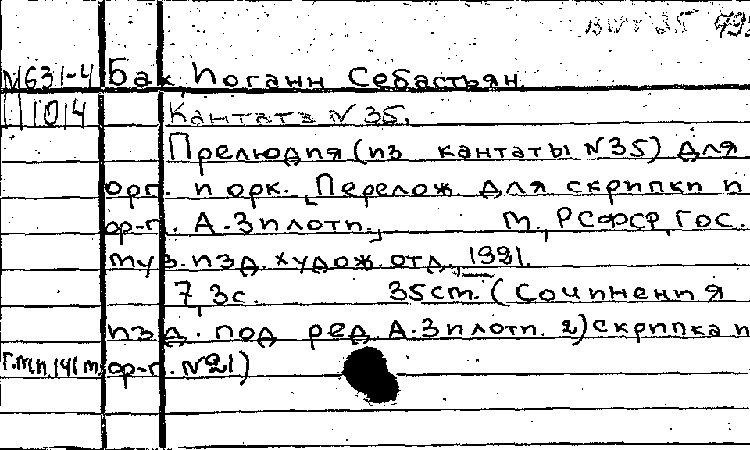 BWV 35
М631-4 Бах, Иоганн Себастьян.
1014 Кантата № 35.
Прелюдия (из кантаты № 35) для
орг. и орк. [Перелож для скрипки и
ор-п. А. Зилоти.] М., РСФСР, Гос.
муз. изд. худож. отд., 1931.
7, 3с. 35 ст. (Сочинения
изд. под ред. А. Зилоти. 2) скрипка и
Г.м.п. 141 м. ор-п. № 21)